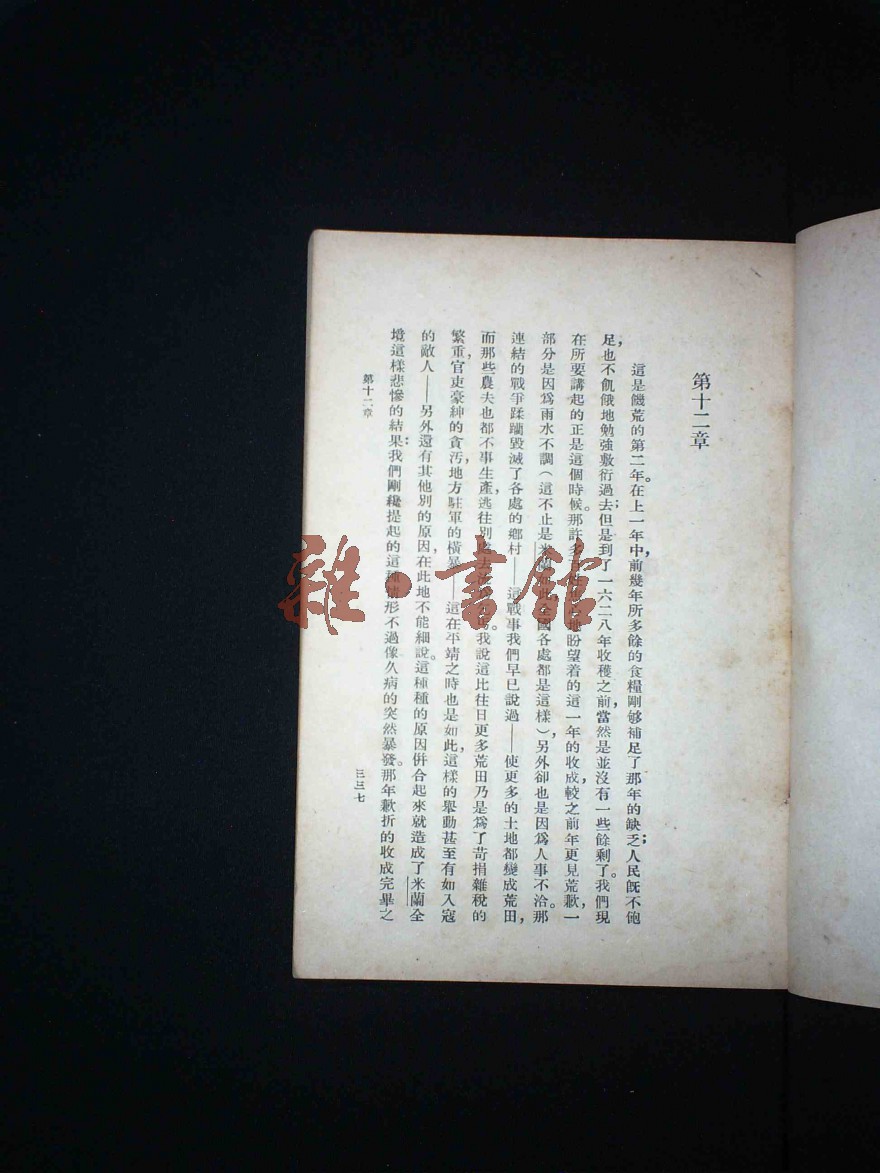 第十二章
這是饑荒的第二年。在上一年中，前幾年所多餘的食糧剛够補足了那年的缺乏；人民既不飽
足，也不飢餓地勉強敷衍過去；但是到了一六二八年收穫之前，當然是並沒有一些餘剩了。我們現
在所要講起的正是這個時候。那許多地盼望着的這一年的收成，較之前年更見荒歉，一
部分是因爲雨水不調（這不止是米蘭全國各處都是這樣），另外卻也是因爲人事不洽。那
連結的戰爭蹂躪毀滅了各處的鄉村——這戰事我們早已說過——使更多的土地都變成荒田，
而那些農夫也都不事生產，逃往別處去。我說這比往日更多荒田乃是爲了苛捐雜稅的
繁重，官吏豪紳的貪汚，地方駐軍的橫暴——這在平靖之時也是如此，這樣的舉動甚至有如入寇
的敵人——另外還有其他別的原因，在此地不能細說。這種種的原因併合起來就造成了米蘭全
境這樣悲慘的結果：我們剛纔提起的這種情形不過像久病的突然暴發。那年歉折的收成完畢之
第十二章
三三七
雜·書館